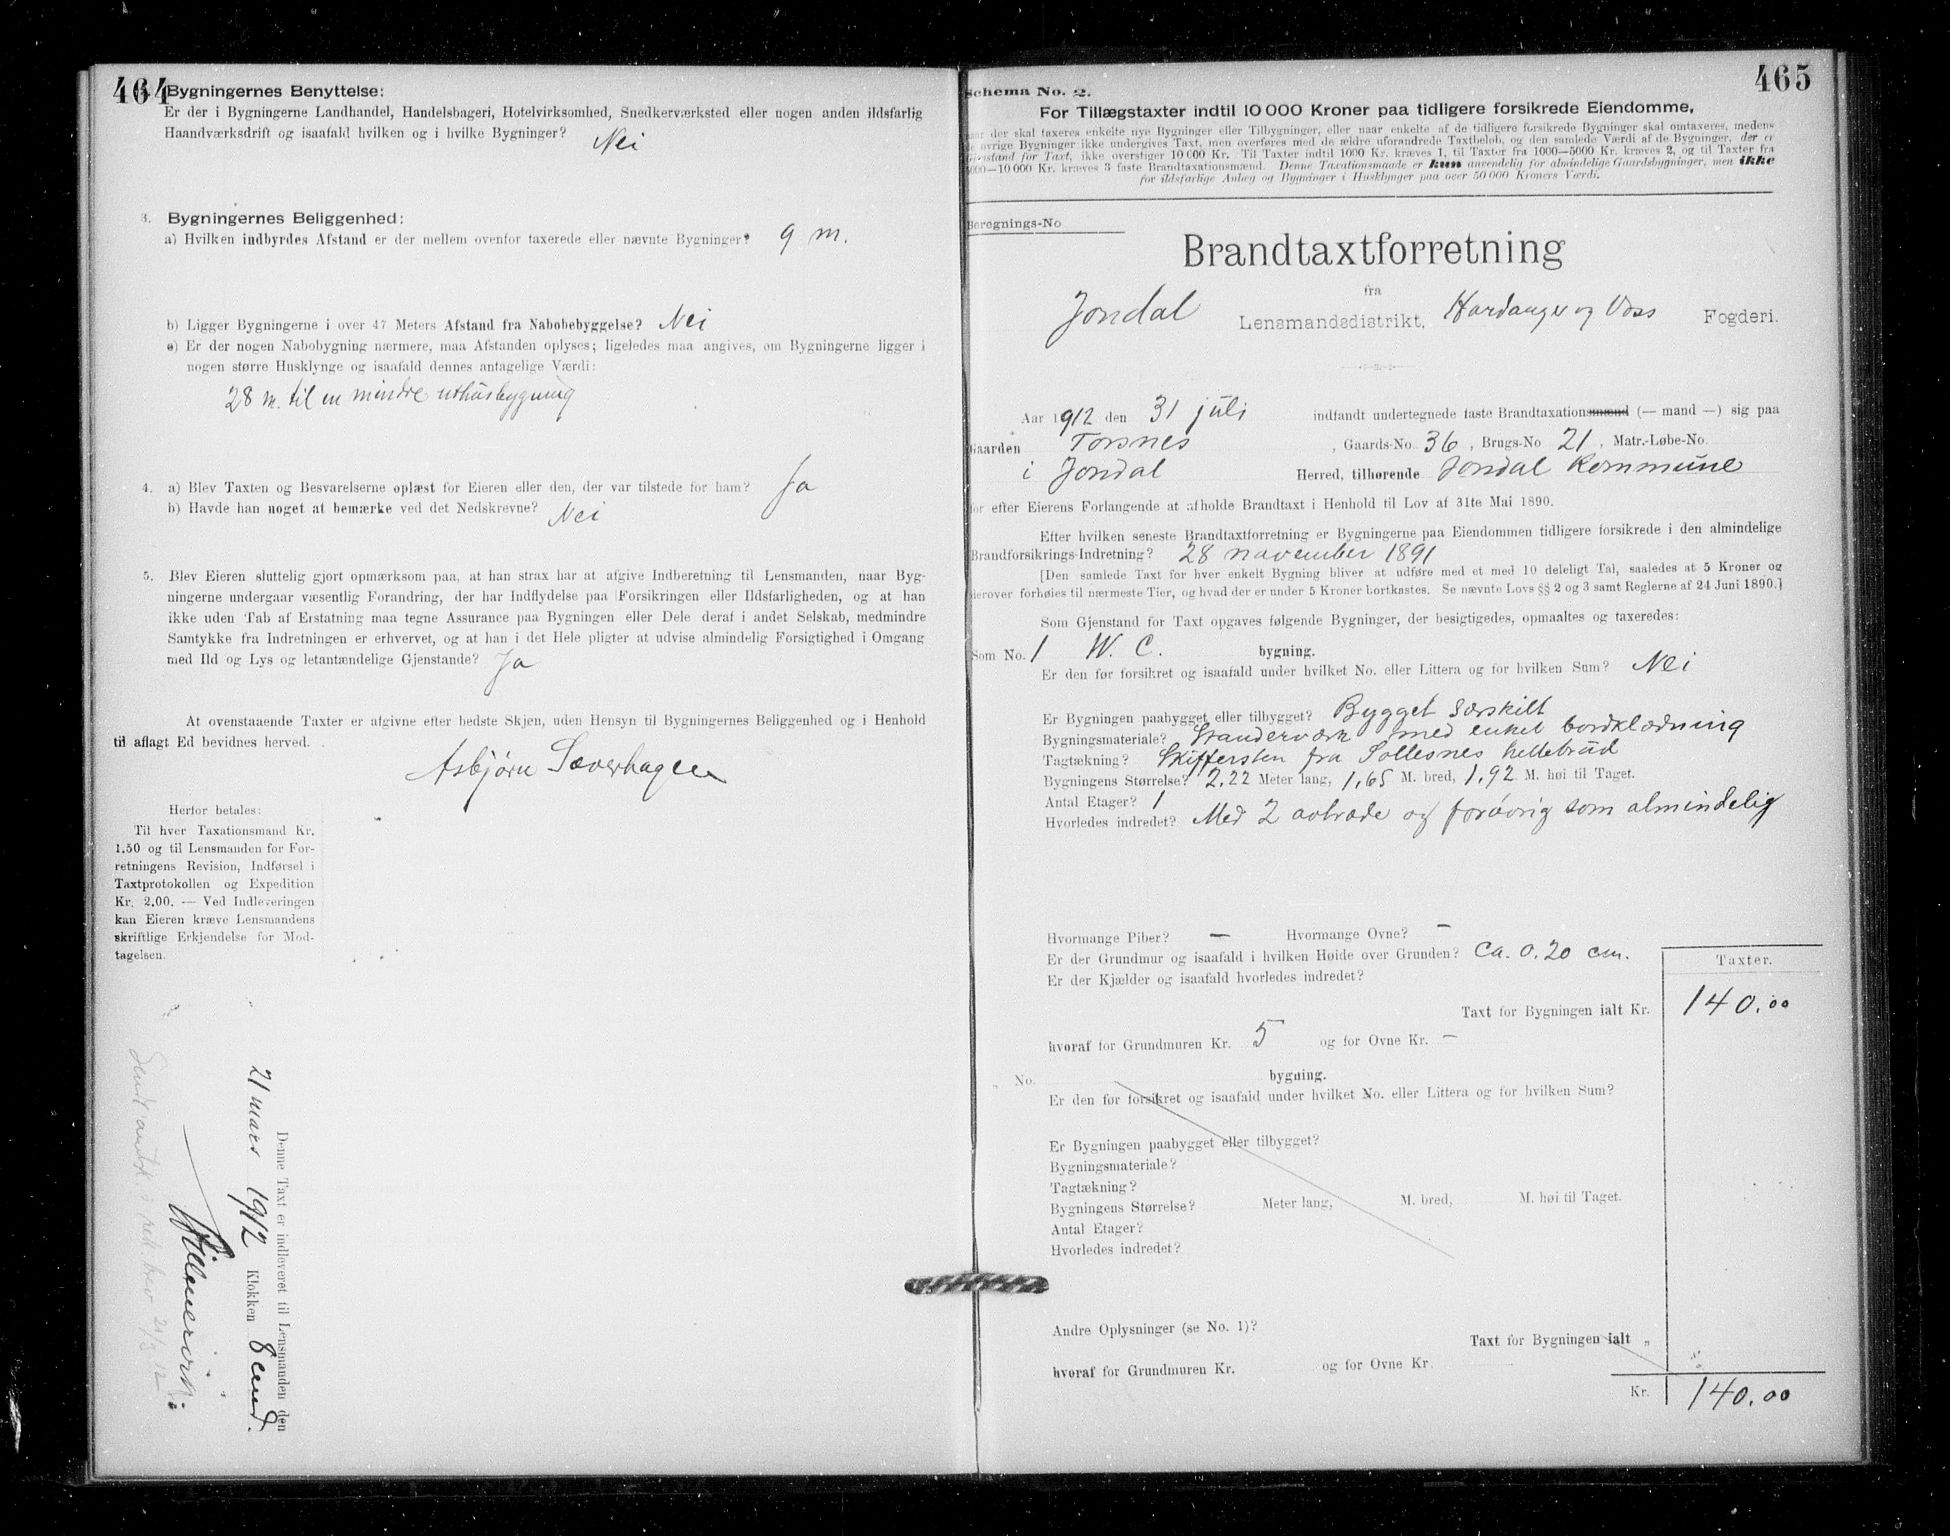 464
Bygningernes Benyttelse:
Er der i Bygningerne Landhandel, Handelsbageri, Hotelvirksomhed, Snedkerværksted eller nogen anden ildsfarlig
Haandværksdrift og isaafald hvilken og i hvilke Bygninger? Nei
3. Bygningernes Beliggenhed:
a) Hvilken indbyrdes Afstand er der mellem ovenfor taxerede eller nævnte Bygninger? 9 m.
b) Ligger Bygningerne i over 47 Meters Afstand fra Nabobebyggelse? Nei
c) Er der nogen Nabobygning nærmere, maa Afstanden oplyses; ligeledes maa angives, om Bygningerne ligger i
nogen større Husklynge og isaafald dennes antagelige Værdi:
28 m. til en mindre uthusbygning
4. a) Blev Taxten og Besvarelserne oplæst for Eieren eller den, der var tilstede for ham? Ja
b) Havde han noget at bemærke ved det Nedskrevne? Nei
5. Blev Eieren sluttelig gjort opmærksom paa, at han strax har at afgive Indberetning til Lensmanden, naar Byg-
ningerne undergaar væsentlig Forandring, der har Indflydelse paa Forsikringen eller Ildsfarligheden, og at han
ikke uden Tab af Erstatning maa tegne Assurance paa Bygningen eller Dele deraf i andet Selskab, medmindre
Samtykke fra Indretningen er erhvervet, og at han i det Hele pligter at udvise almindelig Forsigtighed i Omgang
med Ild og Lys og letantændelige Gjenstande? Ja
At ovenstaaende Taxter er afgivne efter bedste Skjøn, uden Hensyn til Bygningernes Beliggenhed og i Henhold
til aflagt Ed bevidnes herved.
Asbjørn Sæverhagen
Herfor betales:
Til hver Taxationsmand Kr.
1.50 og til Lensmanden for For-
retningens Revision, Indførsel i
Taxtprotokollen og Expedition
Kr. 2.00. — Ved Indleveringen
kan Eieren kræve Lensmandens
skriftlige Erkjendelse for Mod-
tagelsen.
Denne Taxt er indleveret til Lensmanden den
21 mars 1912 Klokken 8 emd.
465
Schema No. 2.
For Tillægstaxter indtil 10 000 Kroner paa tidligere forsikrede Eiendomme,
naar der skal taxeres enkelte nye Bygninger eller Tilbygninger, eller naar enkelte af de tidligere forsikrede Bygninger skal omtaxeres, medens
de øvrige Bygninger ikke undergives Taxt, men overføres med de ældre uforandrede Taxtbeløb, og den samlede Værdi af de Bygninger, der er
Gjenstand for Taxt, ikke overstiger 10 000 Kr. Til Taxter indtil 1000 Kr. kræves 1, til Taxter fra 1000—5000 Kr. kræves 2, og til Taxter fra
5000—10 000 Kr. kræves 3 faste Brandtaxationsmænd. Denne Taxationsmaade er kun anvendelig for almindelige Gaardsbygninger, men ikke
for ildsfarlige Anlæg og Bygninger i Husklynger paa over 50 000 Kroners Værdi.
Beregnings-No
Brandtaxtforretning
fra
Jondal Lensmandsdistrikt, Hardanger og Voss Fogderi.
Aar 1912 den 31 juli indfandt undertegnede faste Brandtaxationsmænd (— mand —) sig paa
Gaarden Torsnes, Gaards-No 36, Brugs-No 21, Matr.-Løbe-No.
i Jondal Herred, tilhørende Jondal Kommune
for efter Eierens Forlangende at afholde Brandtaxt i Henhold til Lov af 31te Mai 1890.
Efter hvilken seneste Brandtaxtforretning er Bygningerne paa Eiendommen tidligere forsikrede i den almindelige
Brandforsikrings-Indretning? 28 november 1891
[Den samlede Taxt for hver enkelt Bygning bliver at udføre med et med 10 deleligt Tal, saaledes at 5 Kroner og
derover forhøies til nærmeste Tier, og hvad der er under 5 Kroner bortkastes. Se nævnte Lovs §§ 2 og 3 samt Reglerne af 24 Juni 1890.]
Som Gjenstand for Taxt opgaves følgende Bygninger, der besigtigedes, opmaaltes og taxeredes:
Som No. 1 W. C. bygning.
Er den før forsikret og isaafald under hvilket No. eller Littera og for hvilken Sum? Nei
Er Bygningen paabygget eller tilbygget? Bygget særskilt
Bygningsmateriale? Standerværk med enkel bordklædning
Tagtækning? Skiffersten fra Sollesnes hellebrud
Bygningens Størrelse? 2,22 Meter lang, 1,65 M. bred, 1,92 M. høi til Taget.
Antal Etager? 1
Hvorledes indredet? Med 2 avtræde og forøvrig som almindelig
Hvormange Piber? — Hvormange Ovne? —
Er der Grundmur og isaafald i hvilken Høide over Grunden? Ca. 0.20 cm.
Er der Kjælder og isaafald hvorledes indredet?
Taxter.
Taxt for Bygningen ialt Kr. 140.00
hvoraf for Grundmuren Kr. 5 og for Ovne Kr. —
„ No. bygning.
Er den før forsikret og isaafald under hvilket No. eller Littera og for hvilken Sum?
Er Bygningen paabygget eller tilbygget?
Bygningsmateriale?
Tagtækning?
Bygningens Størrelse? Meter lang, M. bred, M. høi til Taget.
Antal Etager?
Hvorledes indredet?
Andre Oplysninger (se No. 1)?
Taxt for Bygningen ialt „
hvoraf for Grundmuren Kr. og for Ovne Kr.
Kr. 140.00